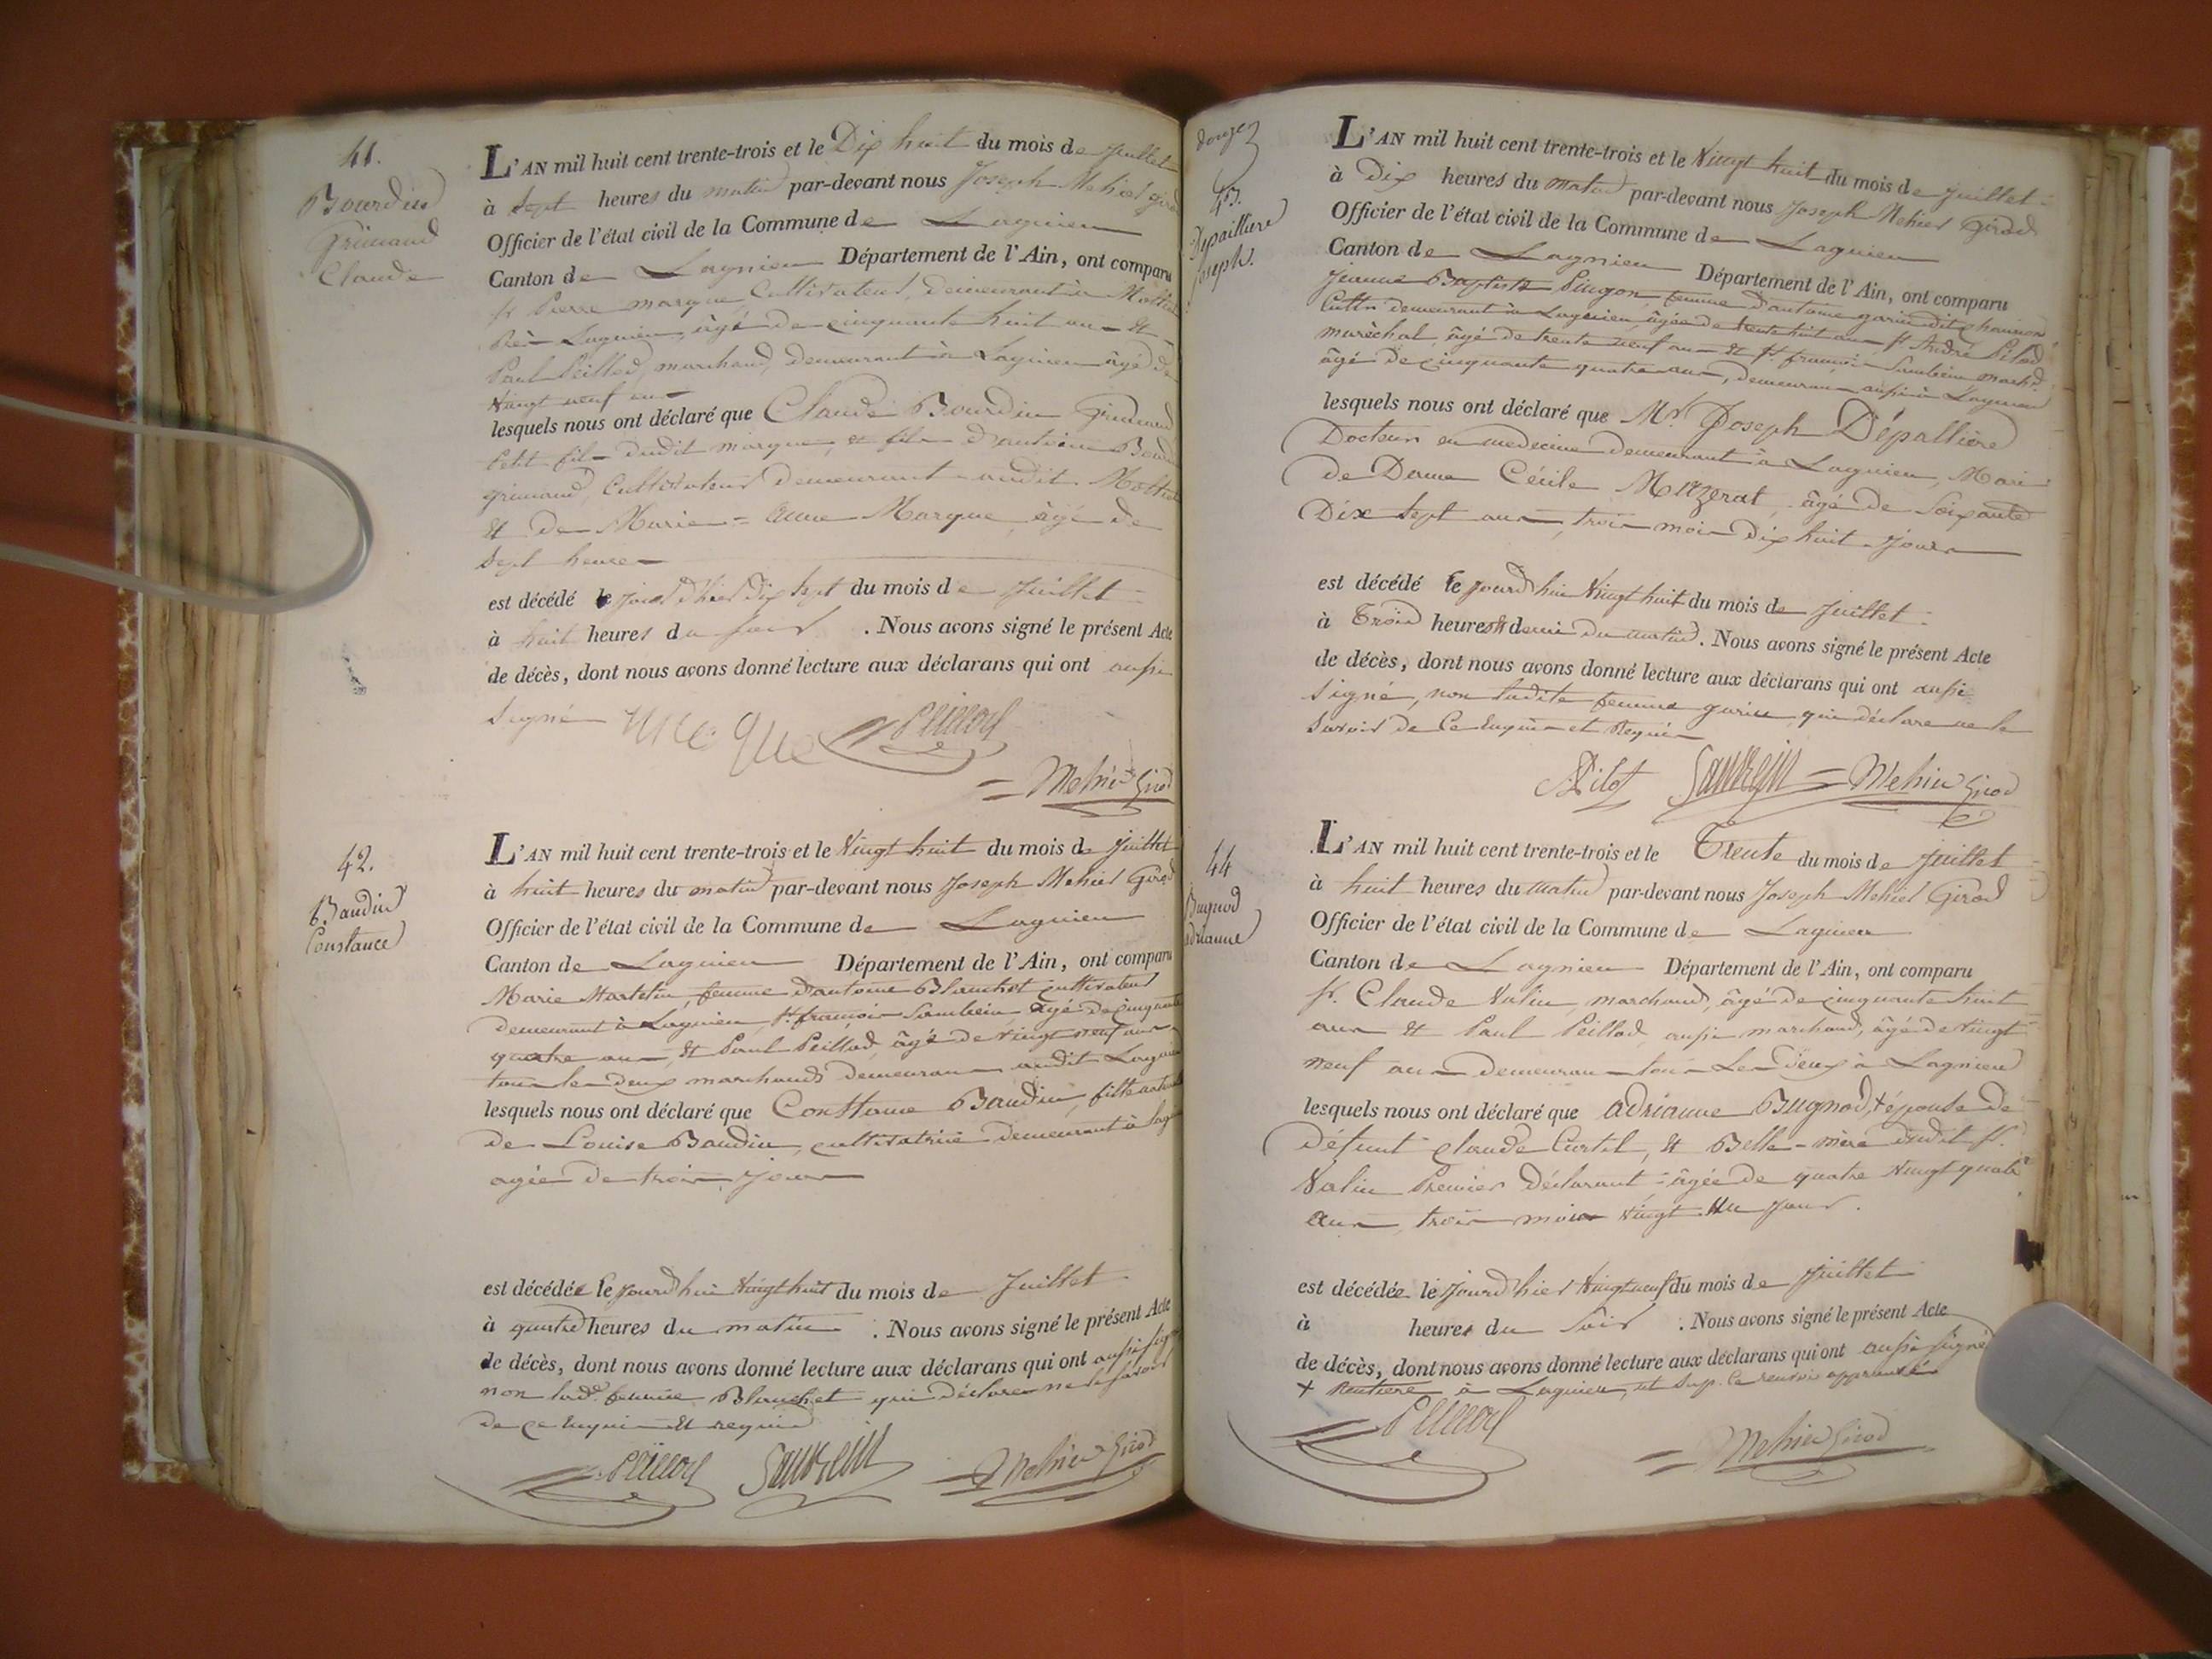 41.
Bourdin
Grimaud
Claude
L'AN mil huit cent trente-trois et le Dix huit du mois de juillet
à sept heures du matin par-devant nous Joseph Mehier girod
Officier de l'état civil de la Commune de Lagnieu
Canton de Lagnieu Département de l'Ain, ont comparu
sr Pierre marque, Cultivateur, demeurant à
Lagnieu, âgé de cinquante huit ans &
Paul Peillod, marchand, demeurant à Lagnieu âgé de
vingt neuf ans
lesquels nous ont déclaré que Claude Bourdin Grimaud
petit fils dudit marque, et fils d'antoine
grimaud, Cultivateur demeurant audit
& de Marie=anne Marque, âgé de
sept heures
est décédé le jour d'hier dix sept du mois de juillet
à huit heures du soir . Nous avons signé le présent Acte
de décès, dont nous avons donné lecture aux déclarans qui ont aussi
signé
Peillod
Mehier Girod
42.
Baudin
Constance
L'AN mil huit cent trente-trois et le vingt huit du mois de juillet
à huit heures du matin par-devant nous Joseph Mehier Girod
Officier de l'état civil de la Commune de Lagnieu
Canton de Lagnieu Département de l'Ain, ont comparu
Marie Martelin, femme d'antoine Blanchet cultivateur
demeurant à Lagnieu, sr françois Sambein, âgé de cinquante
quatre ans, & Paul Peillod, âgé de vingt neuf ans
tous les deux marchands demeurans audit Lagnieu
lesquels nous ont déclaré que Constance Baudin, fille naturelle
de Louise Baudin, cultivatrice demeurant à
agée de trois jours
est décédée le jourd'hui vingt huit du mois de Juillet
à quatre heures du matin . Nous avons signé le présent Acte
de décès, dont nous avons donné lecture aux déclarans qui ont aussi signé
non lade femme Blanchet qui déclare ne le savoir
de ce enquis & requis
Peillod
Mehier Girod
douze
43.
Depaillière
Joseph.
L'AN mil huit cent trente-trois et le vingt huit du mois de juillet
à Dix heures du matin par-devant nous Joseph Mehier Girod
Officier de l'état civil de la Commune de Lagnieu
Canton de Lagnieu Département de l'Ain, ont comparu
Jeanne Baptiste femme d'antoine garin dit
Cultr demeurant à Lagnieu, âgée de trente huit ans, sr André Pilod
maréchal, âgé de trente neuf ans & sr françois Sambein marchd
âgé de cinquante quatre ans, demeurans aussi à Lagnieu
lesquels nous ont déclaré que Mr Joseph Dépallière
Docteur en medecine demeurant à Lagnieu, Mari
de Dame Cécile Mazerat, âgé de Soixante
Dix sept ans, trois mois Dix huit jours
est décédé le jourd'hui vingt huit du mois de juillet
à Trois heures & demie du matin . Nous avons signé le présent Acte
de décès, dont nous avons donné lecture aux déclarans qui ont aussi
signé, non ladite femme garin, qui déclare ne le
savoir de ce enquis et Requis
Pilot
Mehier Girod
44
Bugnod
adrianne
L'AN mil huit cent trente-trois et le Trente du mois de juillet
à huit heures du matin par-devant nous Joseph Mehier Girod
Officier de l'état civil de la Commune de Lagnieu
Canton de Lagnieu Département de l'Ain, ont comparu
sr. Claude Valin, marchand, âgé de cinquante huit
ans & Paul Peillod, aussi marchand, âgé de vingt
neuf ans demeurans tous Les Deux à Lagnieu
lesquels nous ont déclaré que adrianne Bugnod, + épouse de
défunt Claude Curtil, & Belle-mère dudit sr.
Valin Premier Déclarant, âgée de quatre vingt quatre
ans, trois mois vingt un jours.
est décédée le jourd'hier vingt neuf du mois de juillet
à heures du Soir . Nous avons signé le présent Acte
de décès, dont nous avons donné lecture aux déclarans qui ont aussi signé
+ Rentière à Lagnieu, le renvoi approuvé
Peillod
Mehier Girod